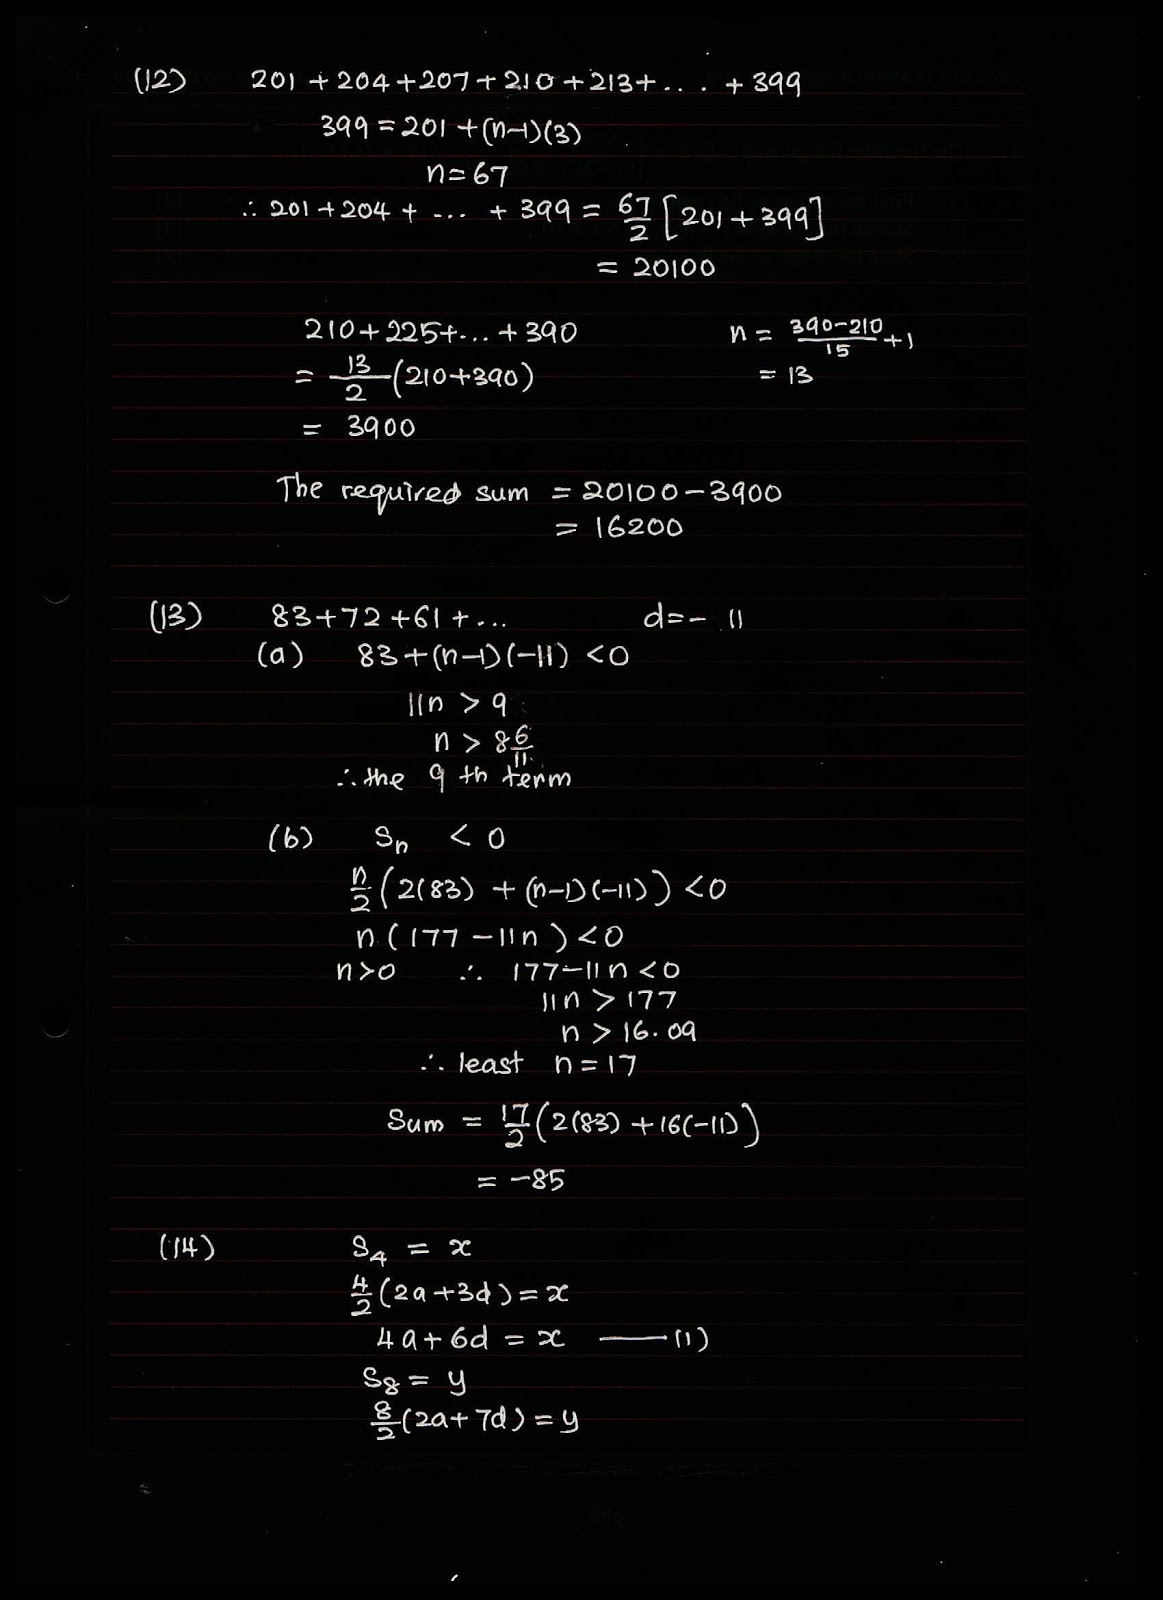 (12) 201 + 204 + 207 + 210 + 213 + ... + 399
399 = 201 + (n-1)(3)
n = 67
∴ 201 + 204 + ... + 399 = 67/2 [201 + 399]
= 20100
210 + 225 + ... + 390 n = (390-210)/15 + 1
= 13/2 (210+390) = 13
= 3900
The required sum = 20100 - 3900
= 16200
(13) 83 + 72 + 61 + ... d = - 11
(a) 83 + (n-1)(-11) < 0
11n > 9
n > 8 6/11
∴ the 9 th term
(b) Sn < 0
n/2 (2(83) + (n-1)(-11)) < 0
n (177 - 11n) < 0
n > 0 ∴ 177 - 11n < 0
11n > 177
n > 16.09
∴ least n = 17
Sum = 17/2 (2(83) + 16(-11))
= -85
(14) S4 = x
4/2 (2a + 3d) = x
4a + 6d = x —— (1)
S8 = y
8/2 (2a + 7d) = y